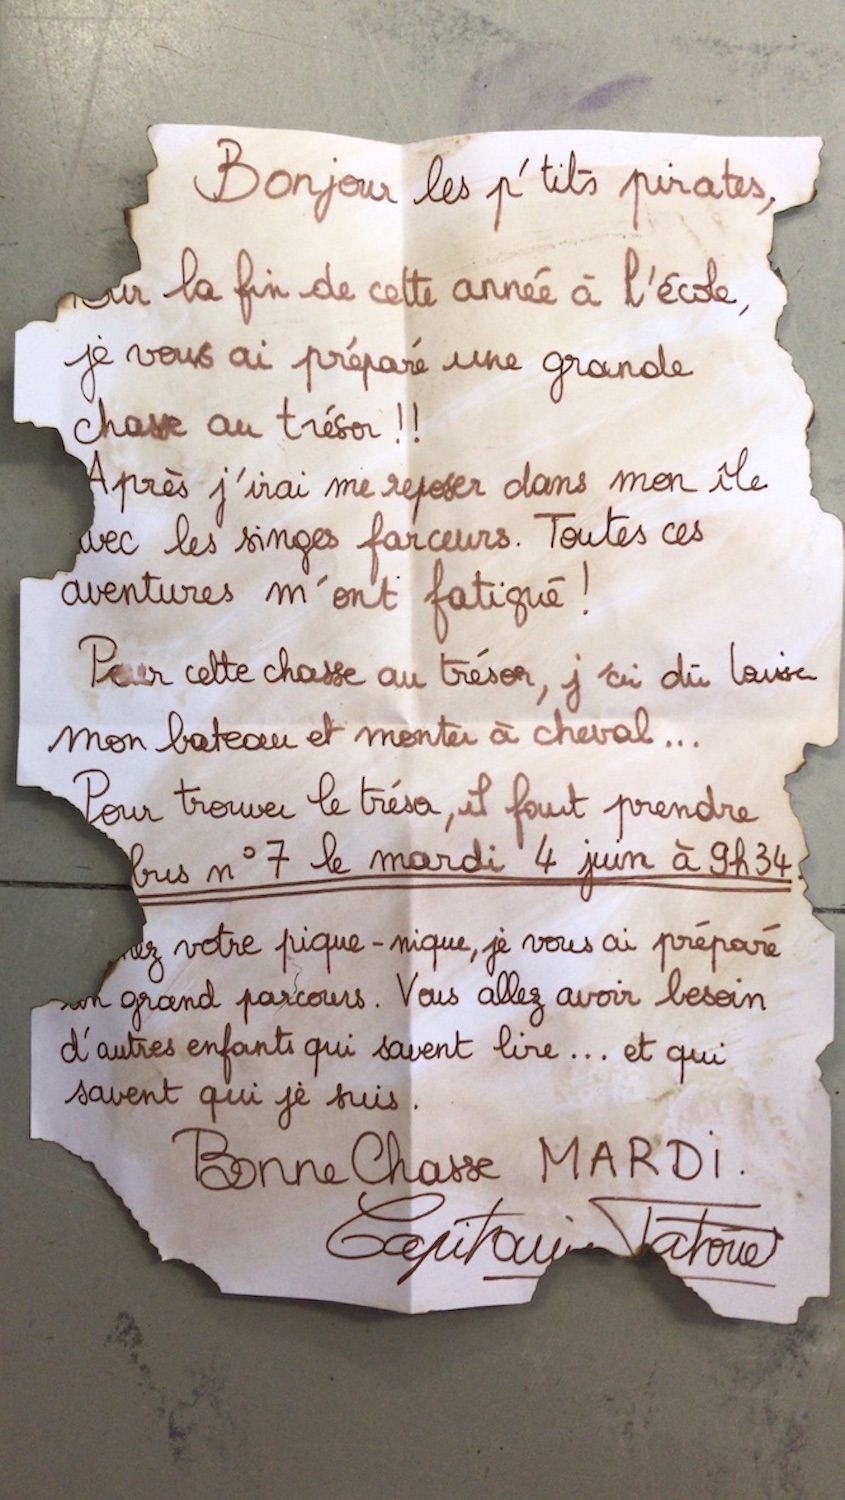 Bonjour les p'tits pirates,
Pour la fin de cette année à l'école,
je vous ai préparé une grande
chasse au trésor !!
Après j'irai me reposer dans mon île
avec les singes farceurs. Toutes ces
aventures m'ont fatigué !
Pour cette chasse au trésor, j'ai dû laisser
mon bateau et monter à cheval...
Pour trouver le trésor, il faut prendre
bus n°7 le mardi 4 juin à 9h34.
votre pique-nique, je vous ai préparé
un grand parcours. Vous allez avoir besoin
d'autres enfants qui savent lire... et qui
savent qui je suis.
Bonne Chasse MARDI.
Capitaine Tatoué